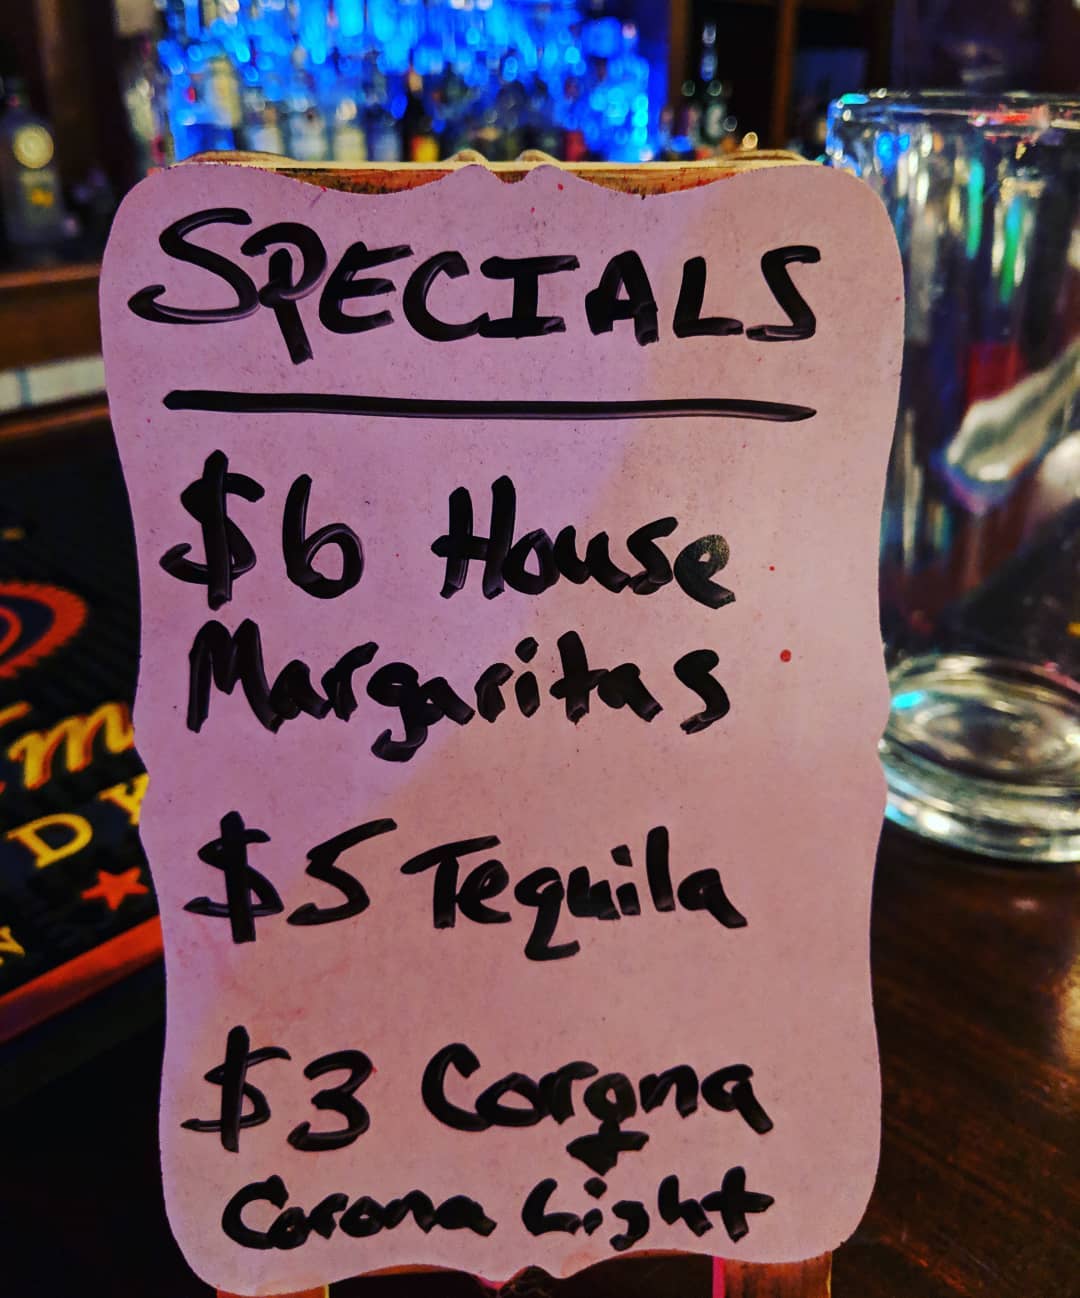 SPECIALS
$6 House
Margaritas
$5 Tequila
$3 Corona
+
Corona Light